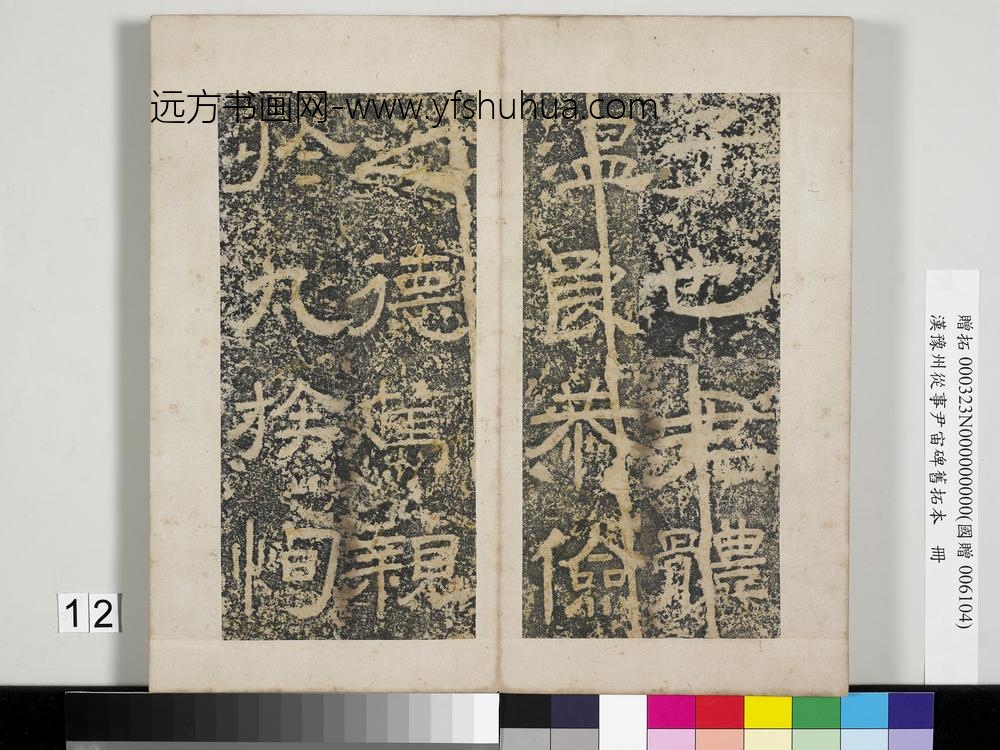 远方书画网-www.yfshuhua.com
子也君體
温良恭儉
之德篤親
於九族恂
12
贈拓 000323N000000000(國贈 006104)
漢豫州從事尹宙碑舊拓本 冊